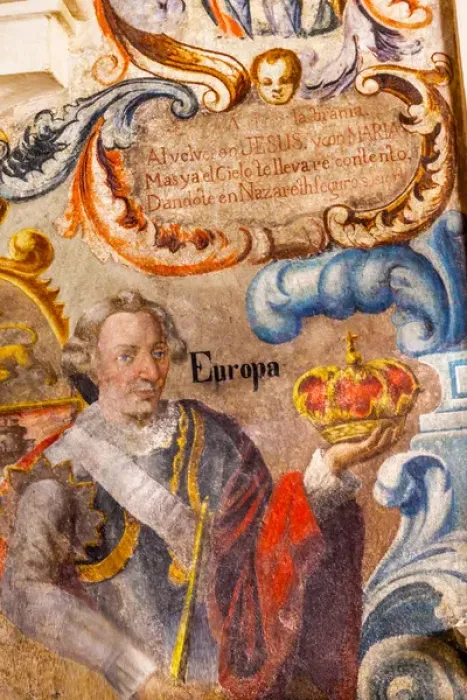 la tirania,
Al velver en JESUS, y con MARIA
Mas ya el Cielo te llevare contento,
Dandote en Nazareth seguro
Europa